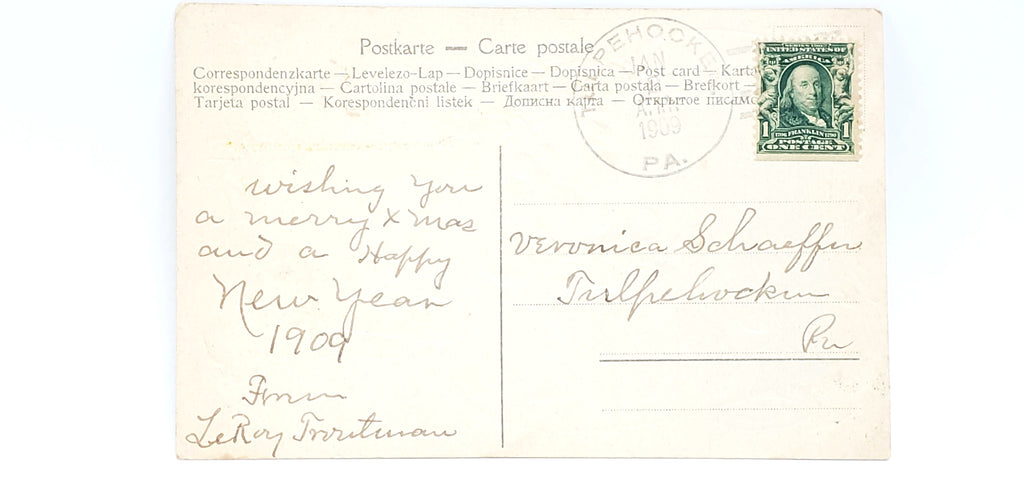 Postkarte — Carte postale
Correspondenzkarte — Levelezo-Lap — Dopisnice — Dopisnica — Post card — Karta
korespondencyjna — Cartolina postale — Briefkaart — Carta postala — Brefkort —
Tarjeta postal — Korespondenčni listek — Дописна карта — Открытое письмо
TULPEHOCKEN
JAN
A.M.
1909
PA.
SERIES 1902
UNITED STATES OF
AMERICA
1 1706 FRANKLIN 1790 1
POSTAGE
ONE CENT
wishing you
a merry Xmas
and a Happy
New Year
1909
From
LeRoy Troutman
Veronica Schaeffer
Tulpehocken
Pa